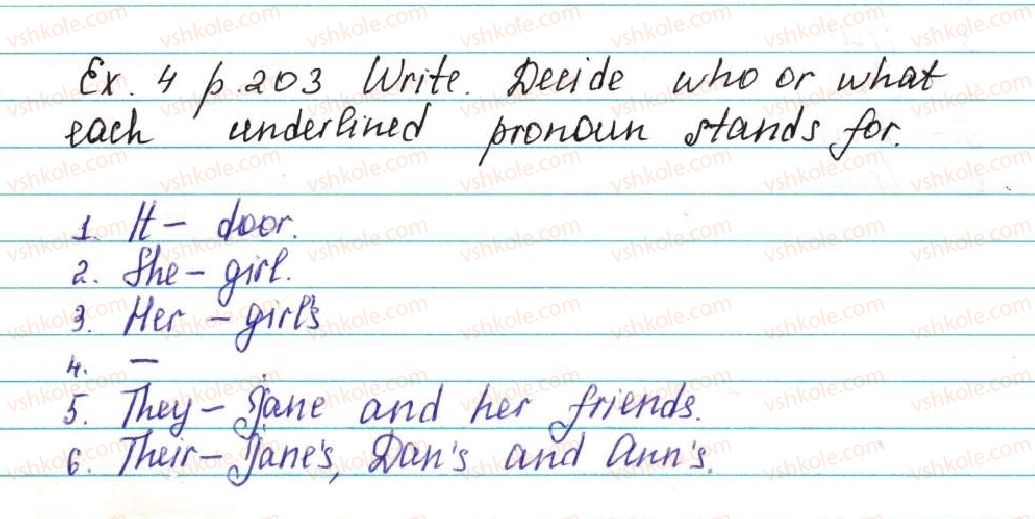 Ex. 4 p.203 Write. Decide who or what
each underlined pronoun stands for.
1. It – door.
2. She – girl.
3. Her – girl's
4. –
5. They – Jane and her friends.
6. Their – Jane's, Dan's and Ann's.